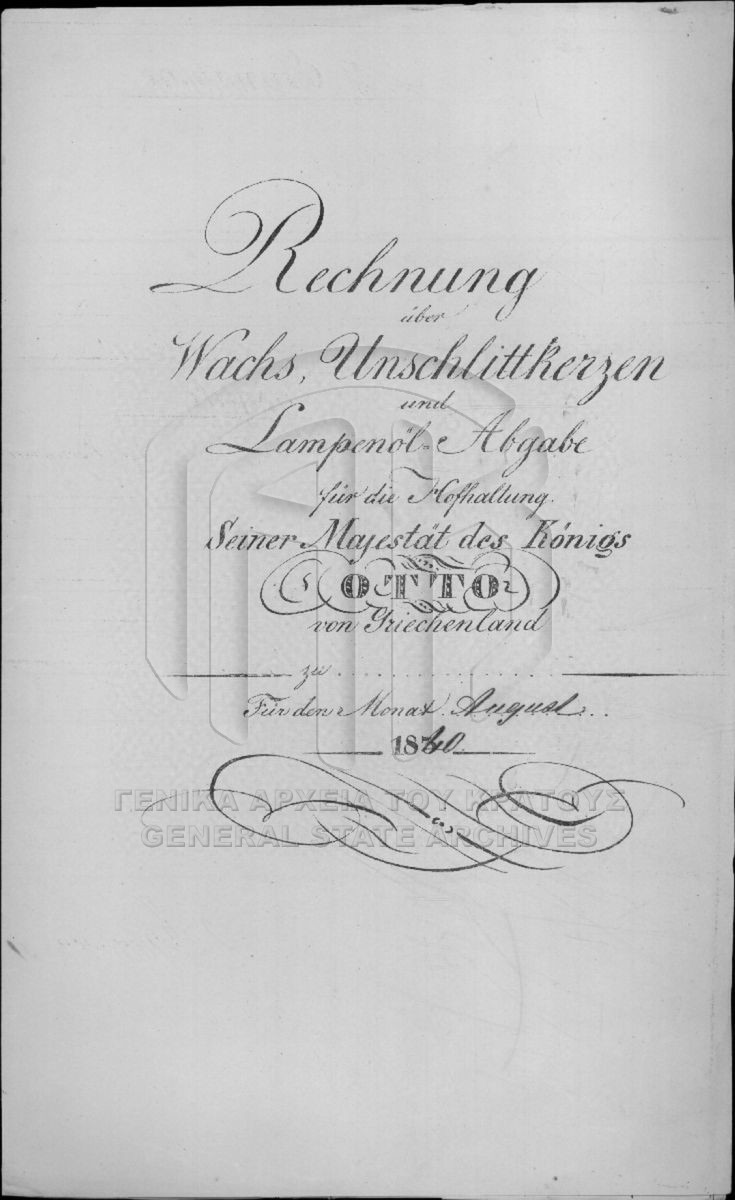 Rechnung
über
Wachs, Unschlittkerzen
und
Lampenöl-Abgabe
für die Hofhaltung
Seiner Majestät des Königs
OTTO
von Griechenland
zu
Für den Monat August
1840
ΓΕΝΙΚΑ ΑΡΧΕΙΑ ΤΟΥ ΚΡΑΤΟΥΣ
GENERAL STATE ARCHIVES